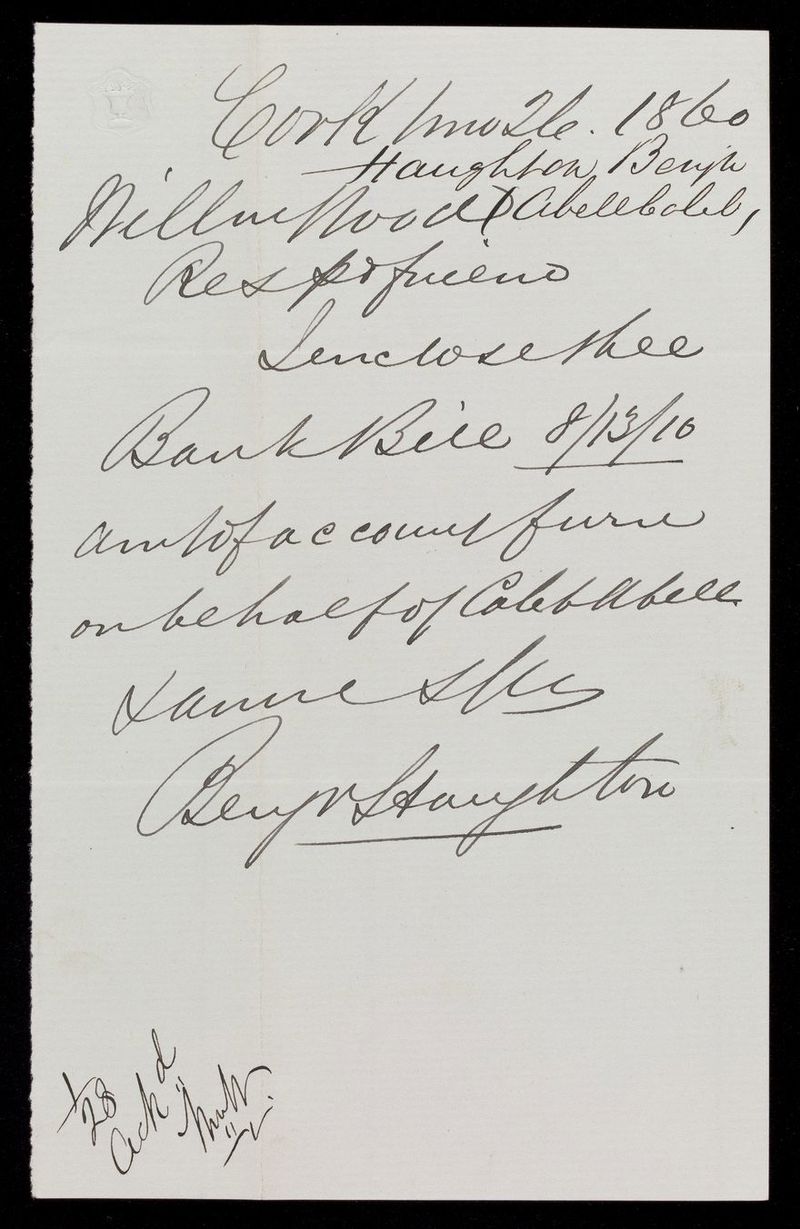 Cork 1mo 26. 1860
Haughton, Benjn
Willm Wood (Abell Caleb,
Respd friend
I enclose thee
Bank Bill 8/13/10
amt of account furn
on behalf of Caleb Abell
Benjn Haughton
1/28
Ackd